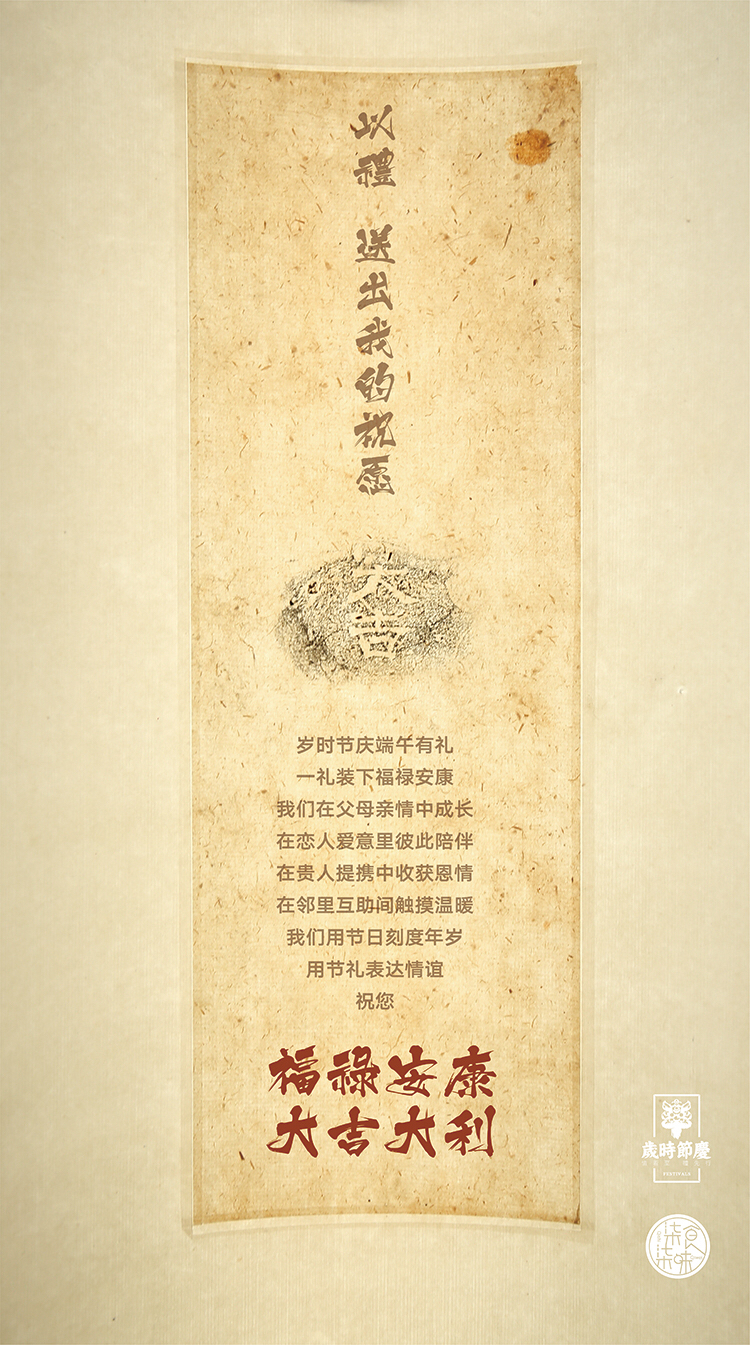 以禮 送出我的祝愿
大吉
岁时节庆端午有礼
一礼装下福禄安康
我们在父母亲情中成长
在恋人爱意里彼此陪伴
在贵人提携中收获恩情
在邻里互助间触摸温暖
我们用节日刻度年岁
用节礼表达情谊
祝您
福禄安康
大吉大利
歲時節慶
FESTIVALS
柒柒食味